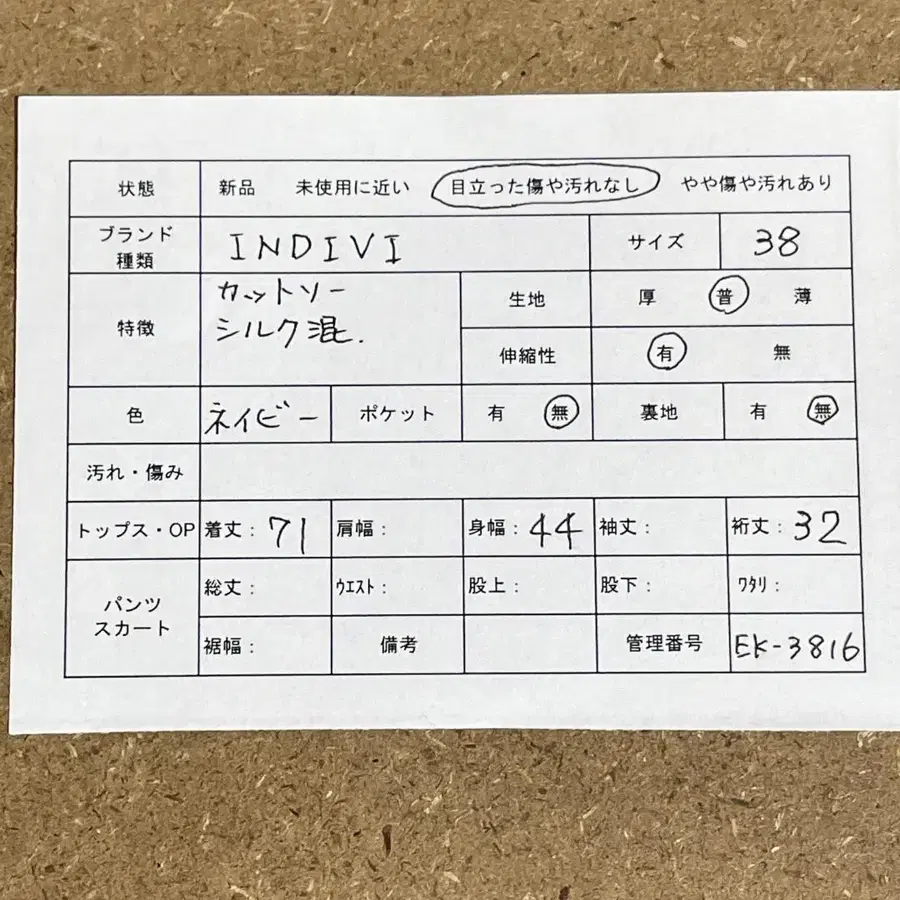 状態 新品 未使用に近い 目立った傷や汚れなし やや傷や汚れあり
ブランド
種類 INDIVI サイズ 38
特徴 カットソー
シルク混.
生地 厚 普 薄
伸縮性 有 無
色 ネイビー ポケット 有 無 裏地 有 無
汚れ・傷み
トップス・OP 着丈: 71 肩幅: 身幅: 44 袖丈: 裄丈: 32
パンツ
スカート
総丈: ウエスト: 股上: 股下: ワタリ:
裾幅: 備考 管理番号 EK-3816